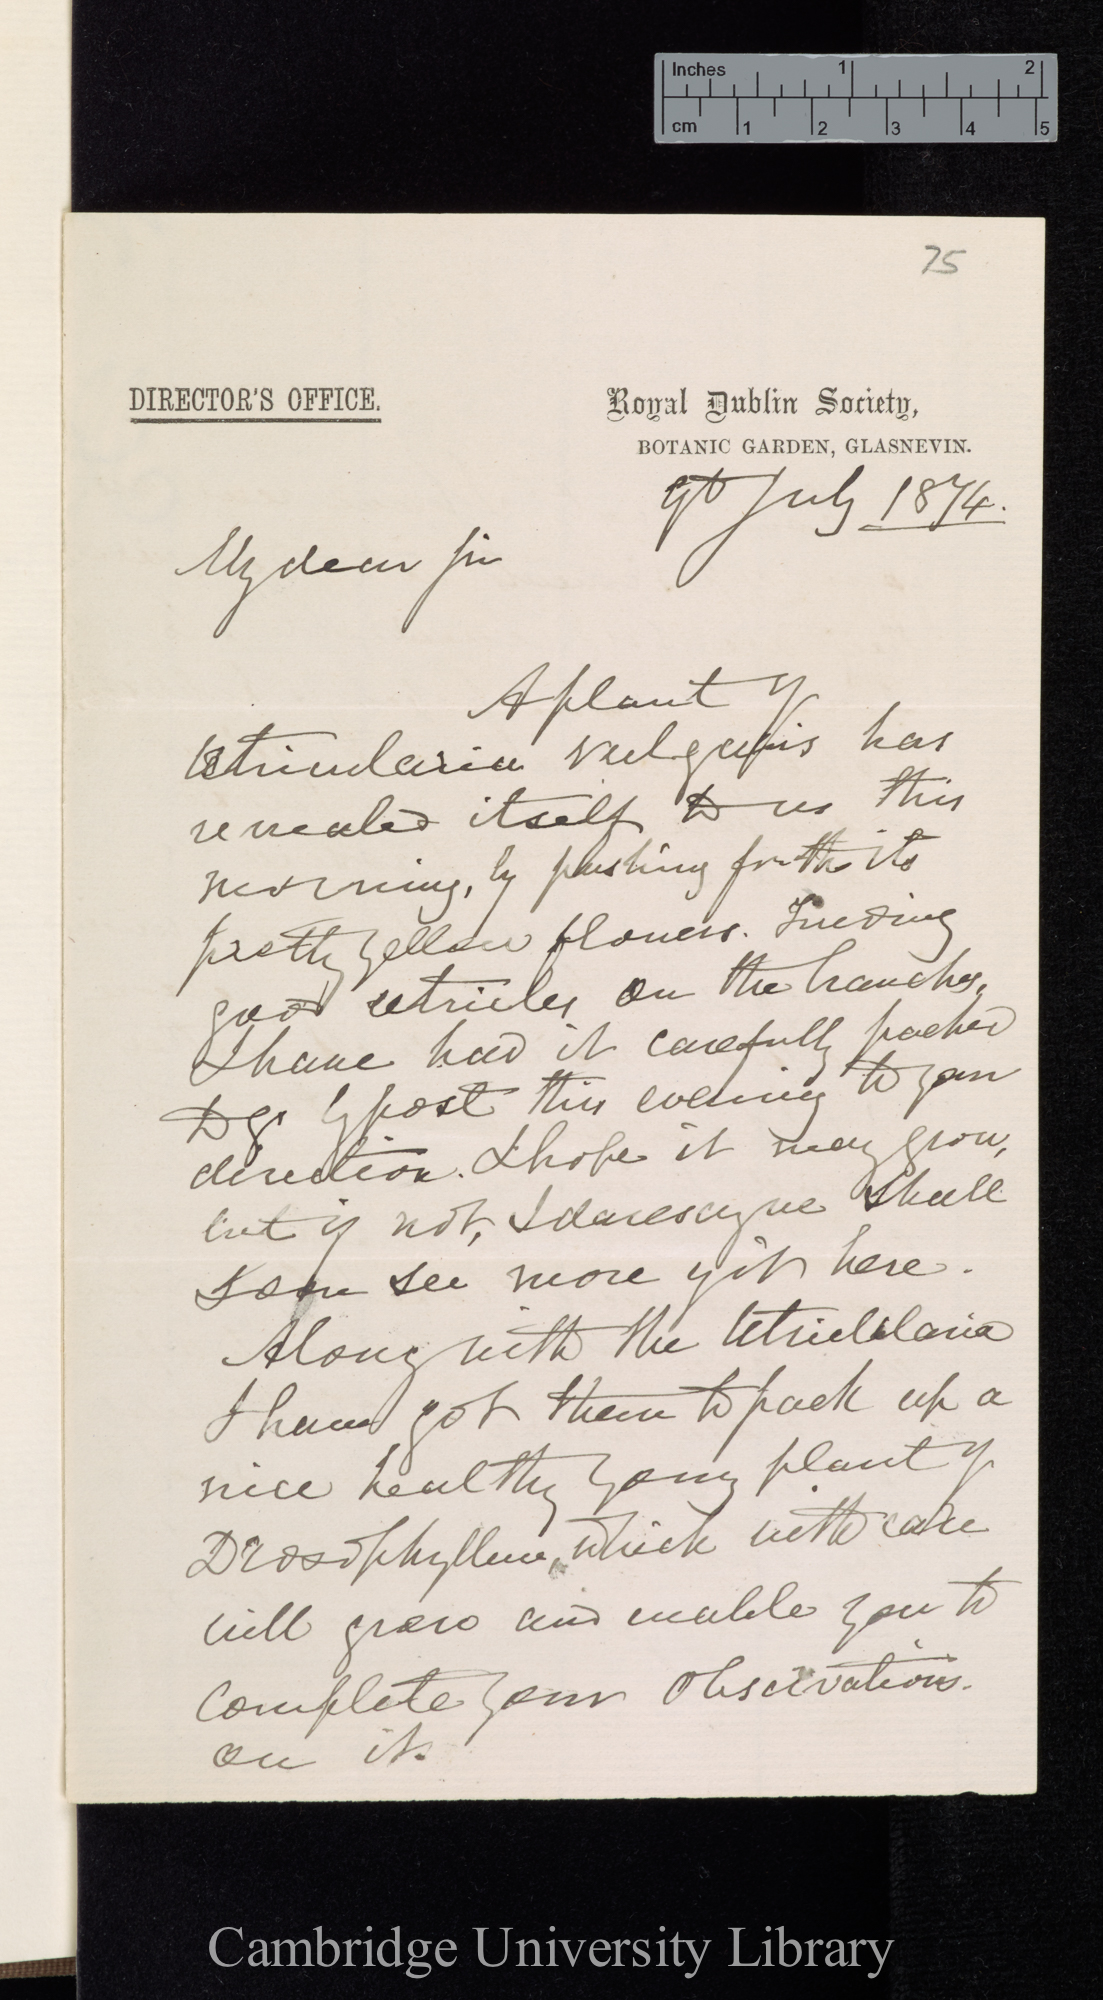 Inches 1 2
cm 1 2 3 4 5
75
DIRECTOR'S OFFICE.
Royal Dublin Society,
BOTANIC GARDEN, GLASNEVIN.
9th July 1874.
My dear Sir
A plant of
Utricularia vulgaris has
revealed itself to us this
morning, by pushing forth its
pretty yellow flowers. Finding
good utricles on the branches,
I have had it carefully packed
to go by post this evening to your
direction. I hope it may grow,
but if not, I daresay we shall
soon see more of it here.
Along with the Utricularia
I have got them to pack up a
nice healthy young plant of
Drosophyllum, which with care
will grow and enable you to
complete your observations.
on it.
Cambridge University Library